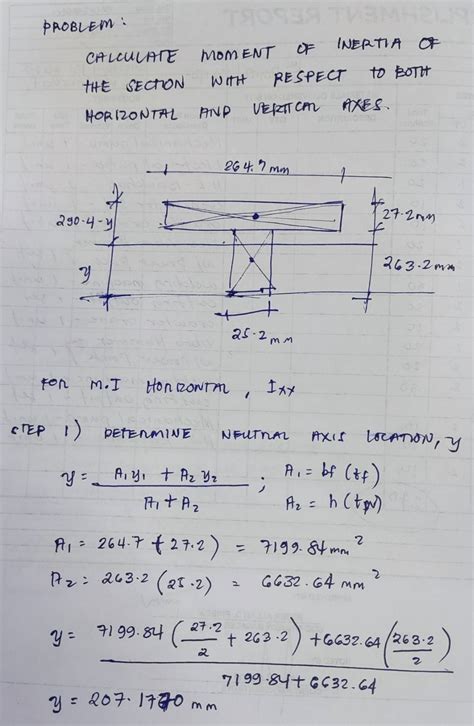 PROBLEM:
CALCULATE MOMENT OF INERTIA OF
THE SECTION WITH RESPECT TO BOTH
HORIZONTAL AND VERTICAL AXES.
264.7 mm
290.4-y
27.2mm
y
263.2mm
25.2 mm
FOR M.I HORIZONTAL, Ixx
STEP 1) DETERMINE NEUTRAL AXIS LOCATION, y
y = A₁y₁ + A₂y₂ / A₁ + A₂ ; A₁ = bf (tf)
A₂ = h (tw)
A₁ = 264.7 (27.2) = 7199.84 mm²
A₂ = 263.2 (25.2) = 6632.64 mm²
y = 7199.84 (27.2/2 + 263.2) + 6632.64 (263.2/2) / 7199.84 + 6632.64
y = 207.1770 mm